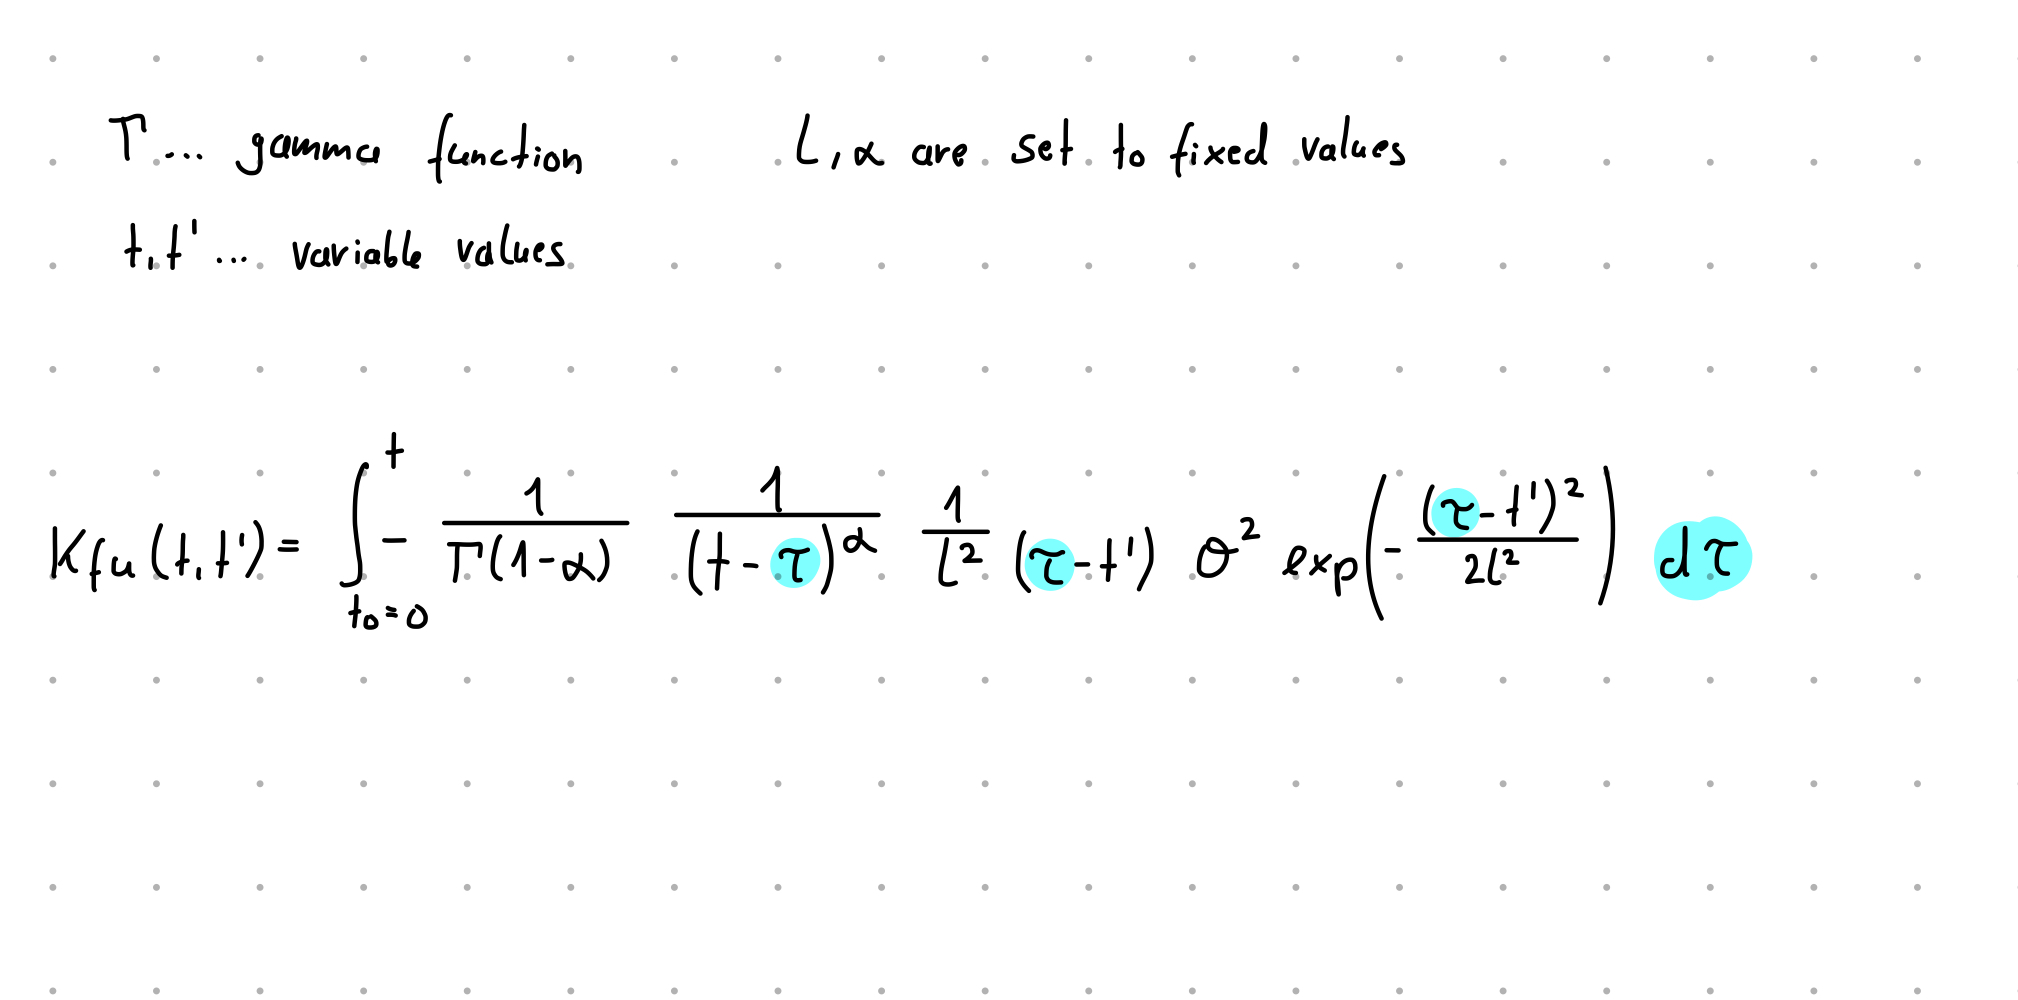 Γ... gamma function L, α are set to fixed values
t, t' ... variable values
K_fu (t, t') = ∫_{t₀=0}^{t} - 1/Γ(1-α) 1/(t-τ)^α 1/L² (τ-t') σ² exp(-(τ-t')²/2L²) dτ